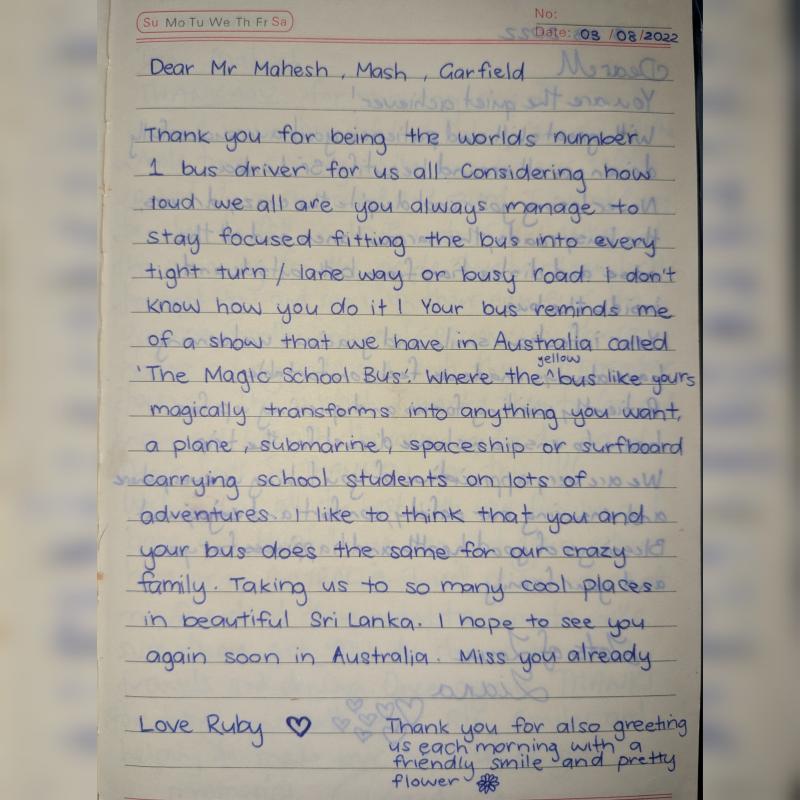 Su Mo Tu We Th Fr Sa
No:
Date: 03 / 08 / 2022
Dear Mr Mahesh, Mash, Garfield
Thank you for being the worlds number
1 bus driver for us all. Considering how
loud we all are you always manage to
stay focused fitting the bus into every
tight turn / lane way or busy road. I don't
know how you do it! Your bus reminds me
of a show that we have in Australia called
'The Magic School Bus'. Where the ^ yellow bus like yours
magically transforms into anything you want,
a plane, submarine, spaceship or surfboard
carrying school students on lots of
adventures. I like to think that you and
your bus does the same for our crazy
family. Taking us to so many cool places
in beautiful Sri Lanka. I hope to see you
again soon in Australia. Miss you already
Love Ruby
Thank you for also greeting
us each morning with a
friendly smile and pretty
flower